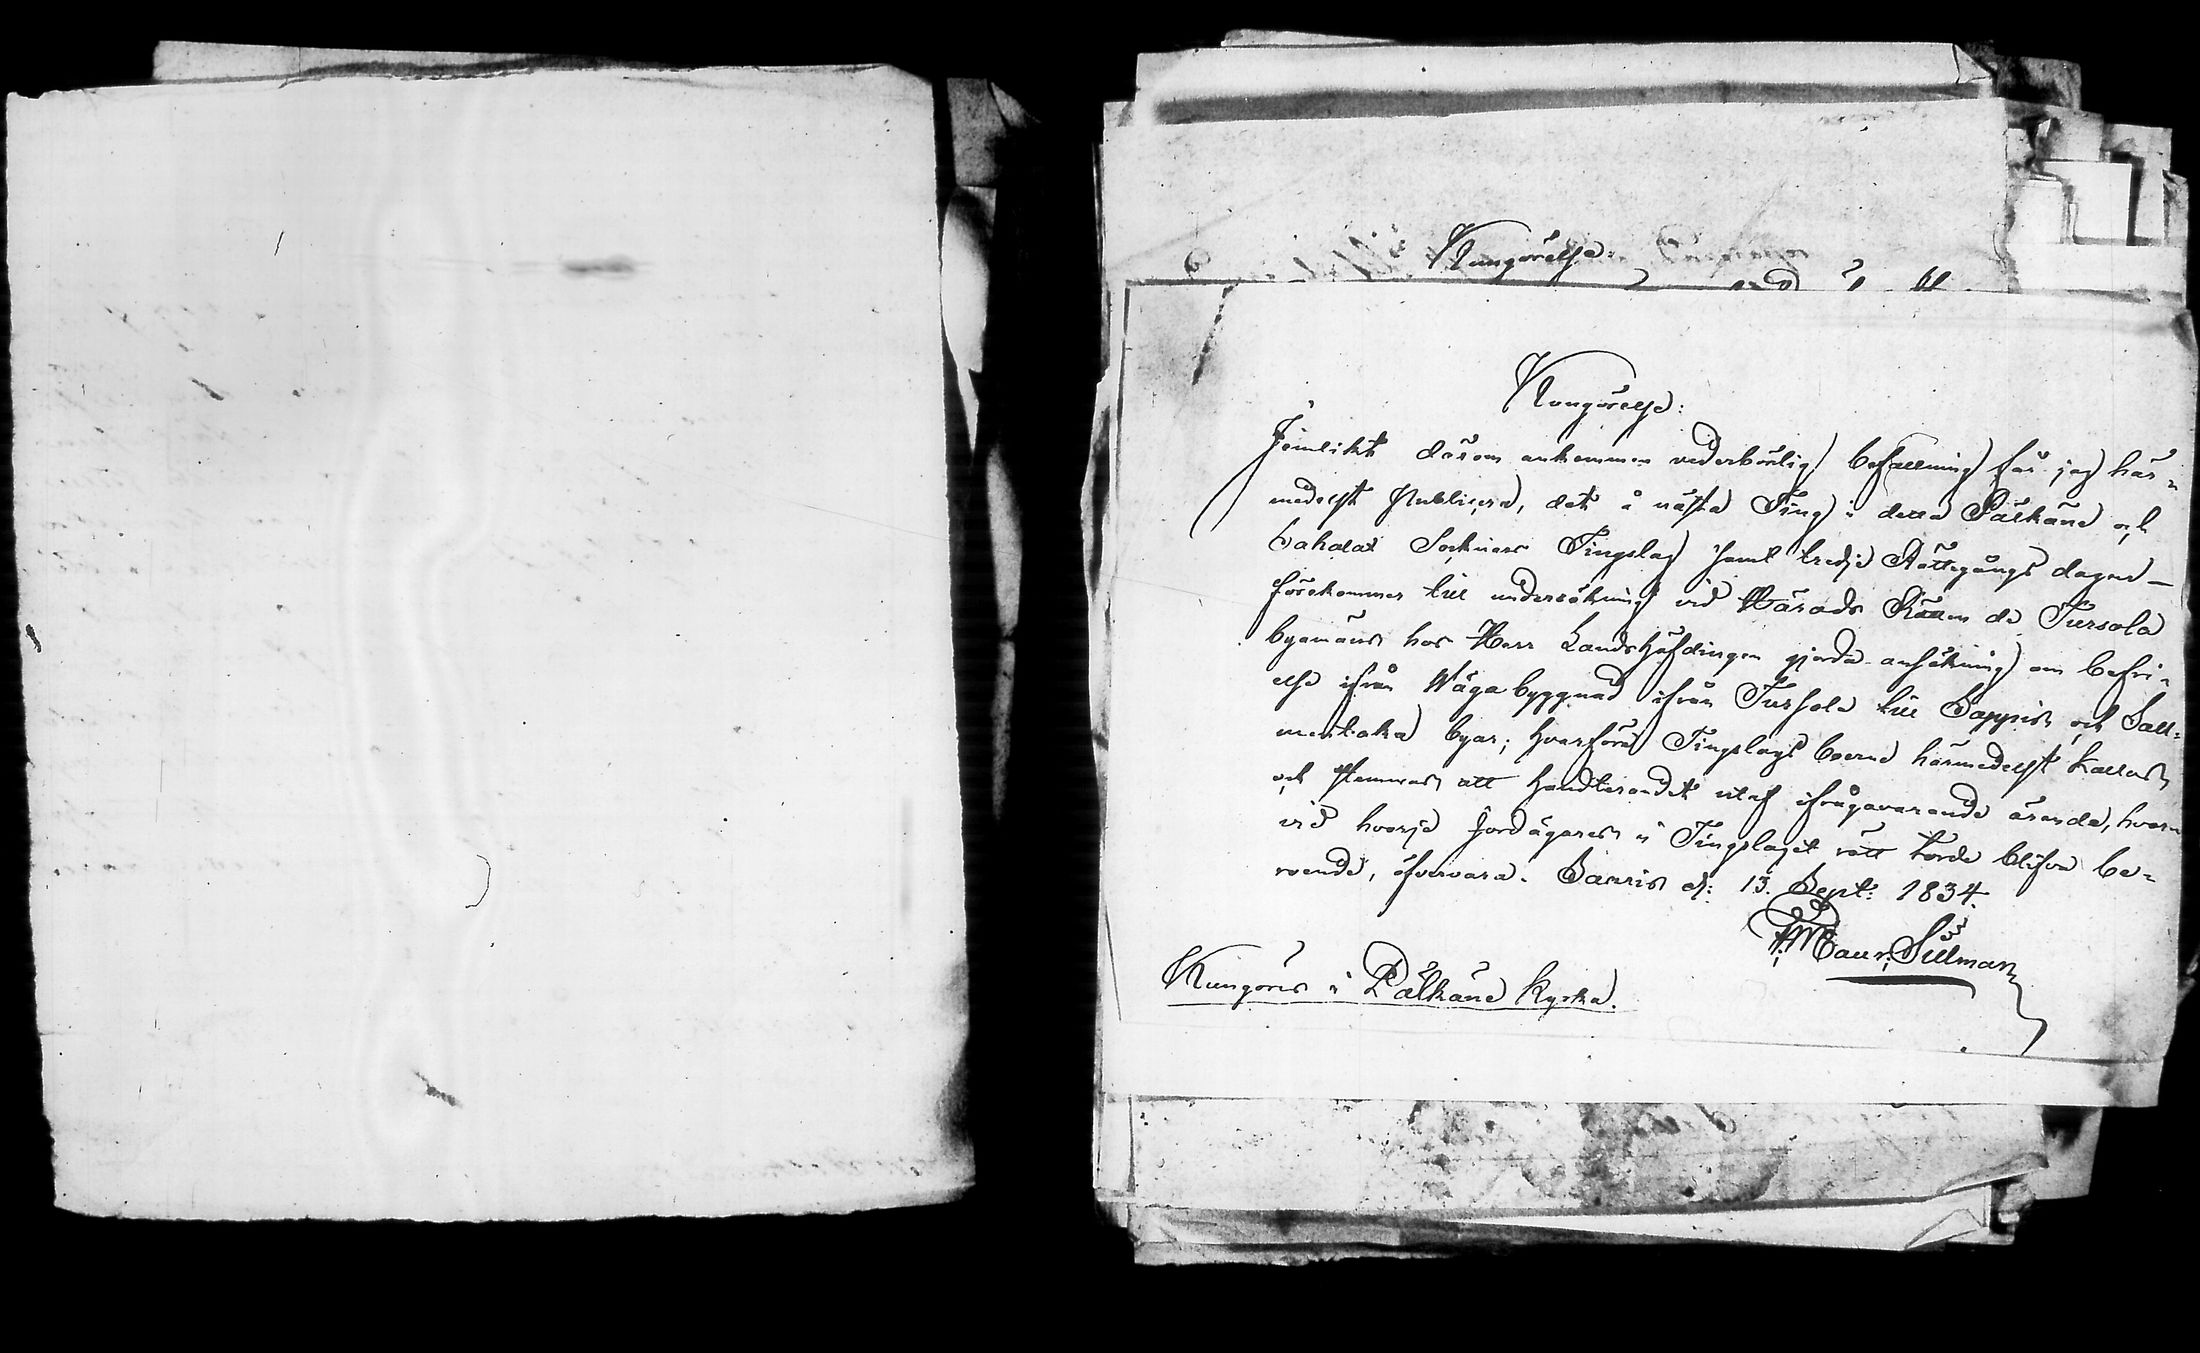 Kungörelse:
Kungörelse:
Jemlikt därom ankommen vederbörlig befallning får jag här-
medelst Publicera, det å nästa Ting i detta Pälkäne och
Sahalax Socknars Tingslag samt tredje Rättegångs dagen
förekommer till undersökning vid Härads Rätten de Tursola
byamäns hos Herr Landshöfdingen gjorda ansökning om befri-
else ifrån Wägabyggnad ifrån Tursola till Sappis och Sall-
mentaka byar; hvarföre Tingslags boerne härmedelst kallas
och stemmas att handterandet utaf ifrågavarande ärende, hvar-
vid hvarje Jordägares i Tingslaget rätt torde blifva be-
roende, öfvervara. Sarris d: 13. Sept: 1834.
Maur: Silman
Kungöres i Pälkäne Kyrka.